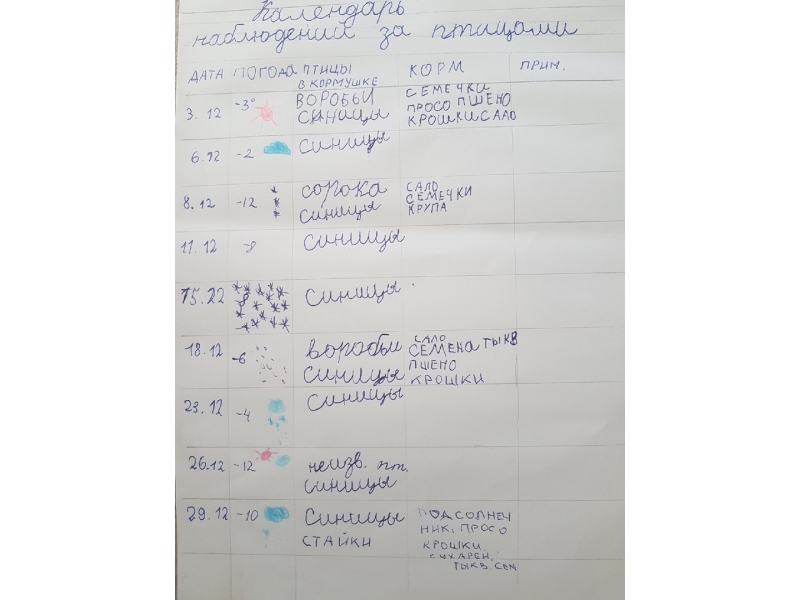 Календарь
наблюдений за птицами
ДАТА ПОГОДА ПТИЦЫ В КОРМУШКЕ КОРМ ПРИМ.
3.12 -3° ВОРОБЬИ СЕМЕЧКИ
СИНИЦЫ ПРОСО ПШЕНО
КРОШКИ САЛО
6.12 -2 синицы
8.12 -12 сорока САЛО
синицы СЕМЕЧКИ
КРУПА
11.12 -8 синицы
15.22 синицы
18.12 -6 воробьи САЛО
СЕМЕНА ТЫКВ
синицы ПШЕНО
КРОШКИ
23.12 -4 синицы
26.12 -12 неизв. пт.
синицы
29.12 -10 синицы ПОДСОЛНЕЧ
СТАЙКИ НИК, ПРОСО
КРОШКИ
СУХАРЕЙ,
ТЫКВ. СЕМ